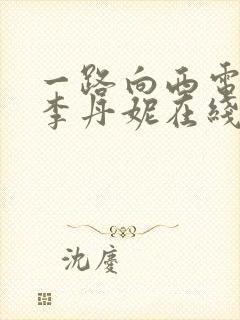 一路向西電
李丹妮在綫
沈慶